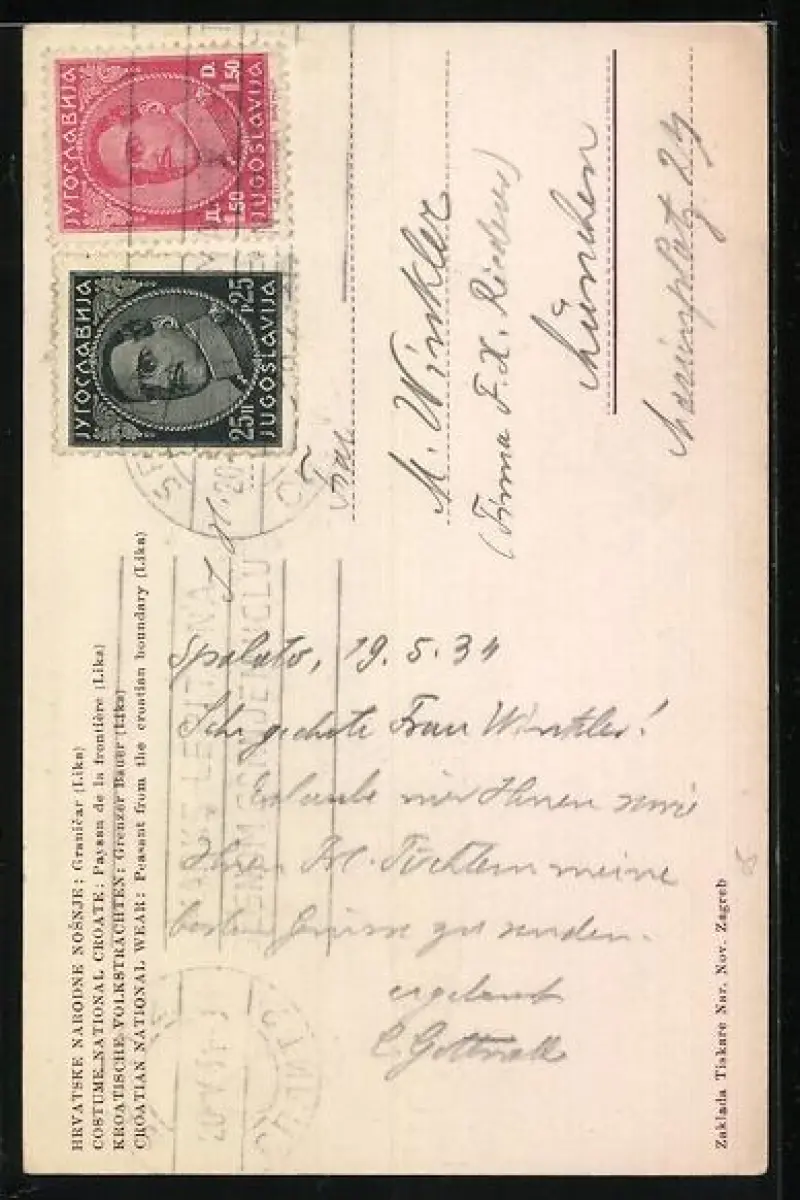 ЈУГОСЛАВИЈА
Д. 1.50 D. 1.50
JUGOSLAVIJA
ЈУГОСЛАВИЈА
25п P25
JUGOSLAVIJA
Frau
M. Winkler
(Firma F. X.
München
HRVATSKE NARODNE NOŠNJE: Graničar (Lika)
COSTUME NATIONAL CROATE: Paysan de la frontière (Lika)
KROATISCHE VOLKSTRACHTEN: Grenzer Bauer (Lika)
CROATIAN NATIONAL WEAR: Peasant from the croatian boundary (Lika)
Spalato, 19.5.34
Sehr geehrte Frau Winkler!
Erlaube mir Ihnen sowie
Ihren Frl. Töchtern meine
besten Grüsse zu senden.
ergebenst
Zaklada Tiskare Nar. Nov. Zagreb